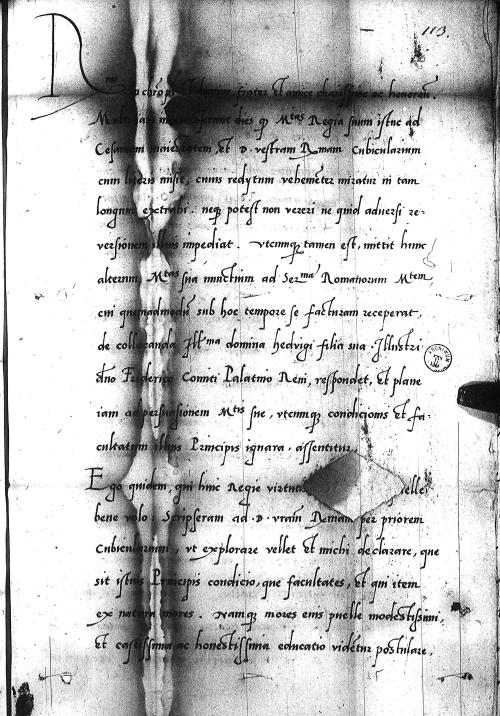 113.
R.me in chro pr et domine, frater et amice charissime ac honoran.
dies q Mtas Regia suum istuc ad
Cesaream maiestatem, et D. vestram Rmam Cubicularium
cum literis misit, cuius reditum vehementer miratur in tam
longum extrahi. neq potest non vereri ne quid adversi re=
versionem illius impediat. vtcumq tamen est, mittit hunc
alterum Mtas sua nunctium ad Ser.ma Romanorum Mtem
cui quemadmodum sub hoc tempore se facturam receperat,
de collocanda Ill.ma domina hedvigi filia sua Illustri
dno Friderico Comiti Palatino Reni, respondet, et plane
iam ad persuasionem Mtis sue, vtcumq condicionis et fa=
cultatum illius Principis ignara, assentitur.
Ego quidem, qui hinc Regie virtutis elle
bene volo. Scripseram ad .D. vram Rmam per priorem
Cubicularium, vt explorare vellet et michi declarare, que
sit istius Principis condicio, que facultates, et qui item
ex natura mores. Namq mores eius puelle modestissimi,
et castissima ac honestissima educatio videtur postulare,